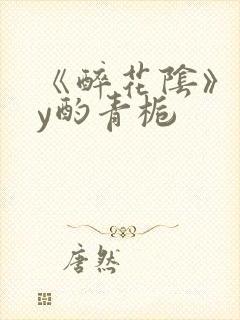 《醉花陰》
y酌青栀
唐然